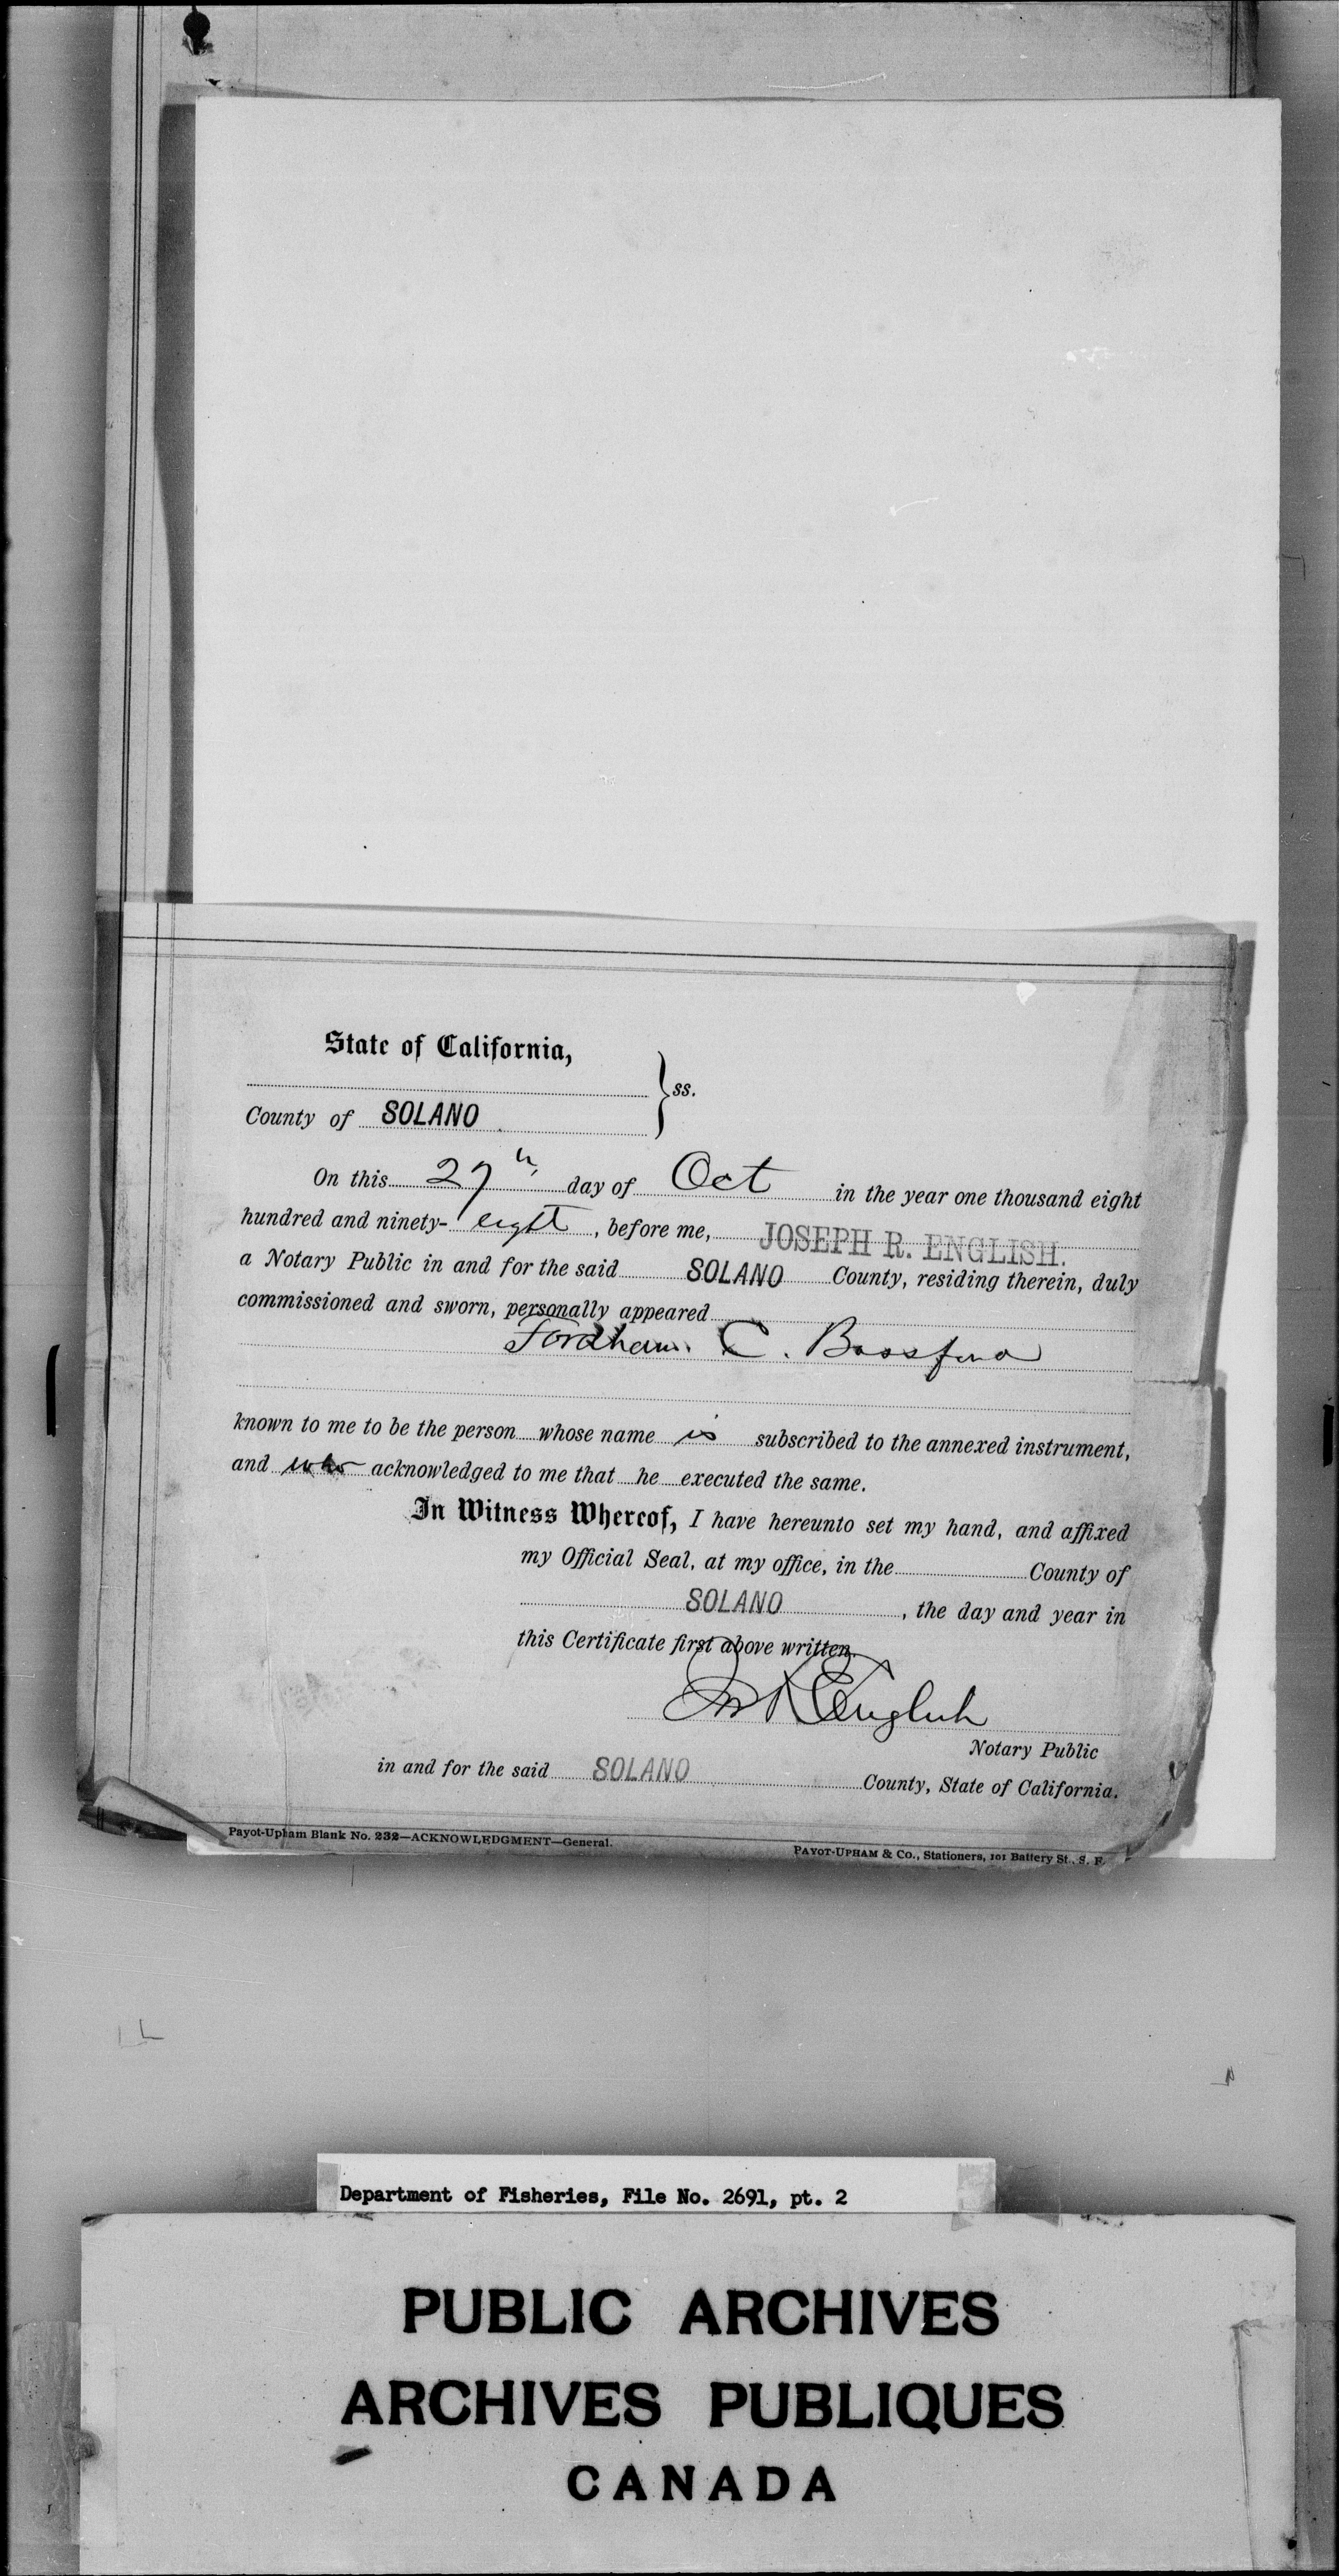 State of California,
ss.
County of SOLANO
On this 27th day of Oct in the year one thousand eight
hundred and ninety- eight, before me, JOSEPH R. ENGLISH.
a Notary Public in and for the said SOLANO County, residing therein, duly
commissioned and sworn, personally appeared
Fordham C. Bassford
known to me to be the person whose name is subscribed to the annexed instrument,
and who acknowledged to me that he executed the same.
In Witness Whereof, I have hereunto set my hand, and affixed
my Official Seal, at my office, in the County of
SOLANO, the day and year in
this Certificate first above written.
Jos R English
Notary Public
in and for the said SOLANO County, State of California.
Payot-Upham Blank No. 232—ACKNOWLEDGMENT—General. PAYOT-UPHAM & Co., Stationers, 101 Battery St., S. F.
Department of Fisheries, File No. 2691, pt. 2
PUBLIC ARCHIVES
ARCHIVES PUBLIQUES
CANADA